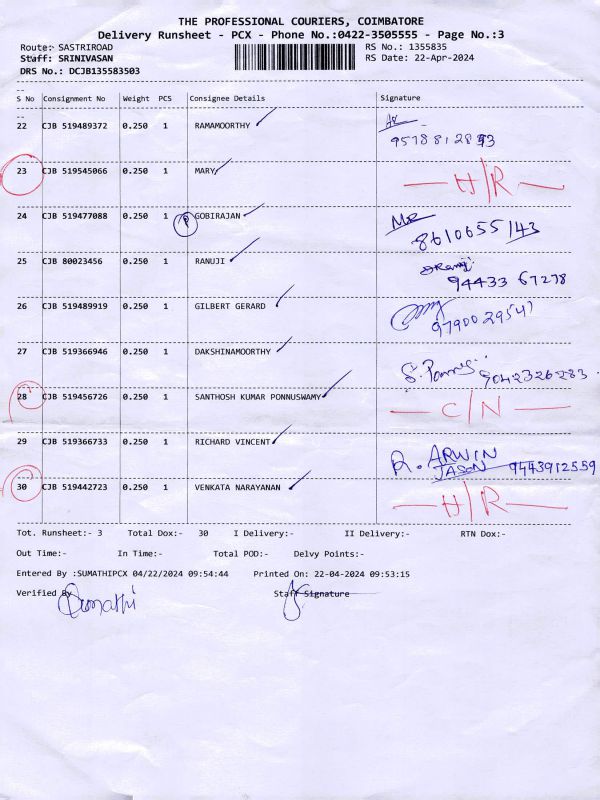 THE PROFESSIONAL COURIERS, COIMBATORE
Delivery Runsheet - PCX - Phone No.:0422-3505555 - Page No.:3
Route:- SASTRIROAD RS No.: 1355835
Staff: SRINIVASAN RS Date: 22-Apr-2024
DRS No.: DCJB135583503
S No Consignment No Weight PCS Consignee Details Signature
22 CJB 519489372 0.250 1 RAMAMOORTHY
23 CJB 519545066 0.250 1 MARY H/R
24 CJB 519477088 0.250 1 P GOBIRAJAN 8610655143
25 CJB 80023456 0.250 1 RANUJI 94433 67278
26 CJB 519489919 0.250 1 GILBERT GERARD 9790029547
27 CJB 519366946 0.250 1 DAKSHINAMOORTHY 9042326283
28 CJB 519456726 0.250 1 SANTHOSH KUMAR PONNUSWAMY C/N
29 CJB 519366733 0.250 1 RICHARD VINCENT R. ARWIN JASON 9443912559
30 CJB 519442723 0.250 1 VENKATA NARAYANAN H/R
Tot. Runsheet:- 3 Total Dox:- 30 I Delivery:- II Delivery:- RTN Dox:-
Out Time:- In Time:- Total POD:- Delvy Points:-
Entered By :SUMATHIPCX 04/22/2024 09:54:44 Printed On: 22-04-2024 09:53:15
Verified By Staff Signature
Sumathi